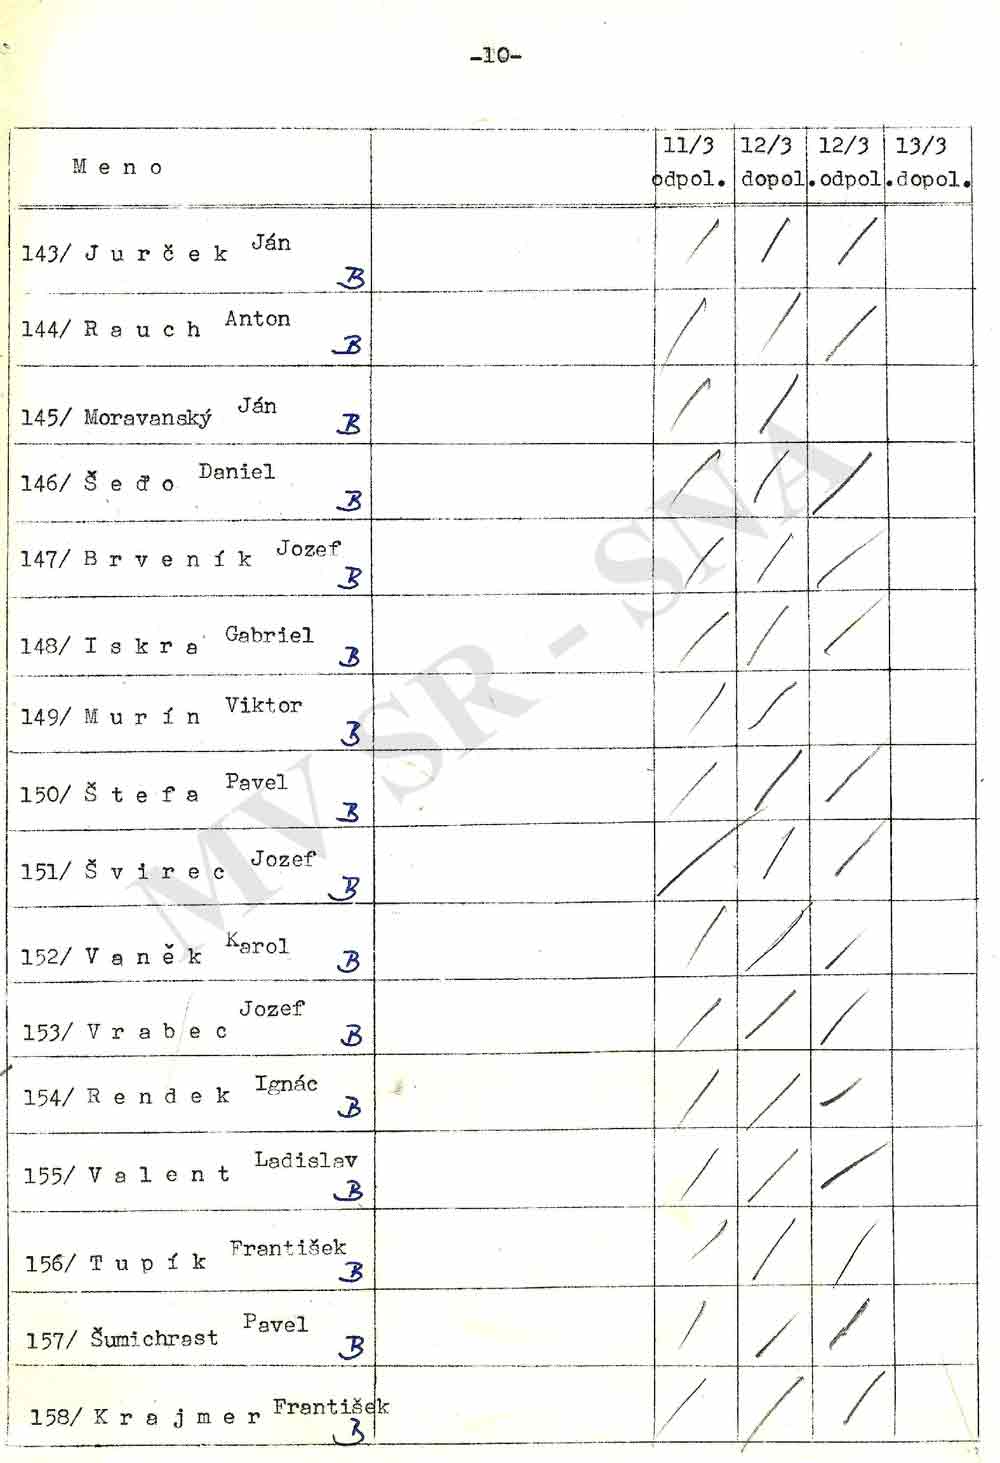 -10-
M e n o 11/3 12/3 12/3 13/3
odpol. dopol. odpol. dopol.
143/ J u r č e k Ján
B
144/ R a u c h Anton
B
145/ Moravanský Ján
B
146/ Š e ď o Daniel
B
147/ B r v e n í k Jozef
B
148/ I s k r a Gabriel
B
149/ M u r í n Viktor
B
150/ Š t e f a Pavel
B
151/ Š v i r e c Jozef
B
152/ V a n ě k Karol
B
153/ V r a b e c Jozef
B
154/ R e n d e k Ignác
B
155/ V a l e n t Ladislav
B
156/ T u p í k František
B
157/ Šumichrast Pavel
B
158/ K r a j m e r František
B
MV SR - SNA